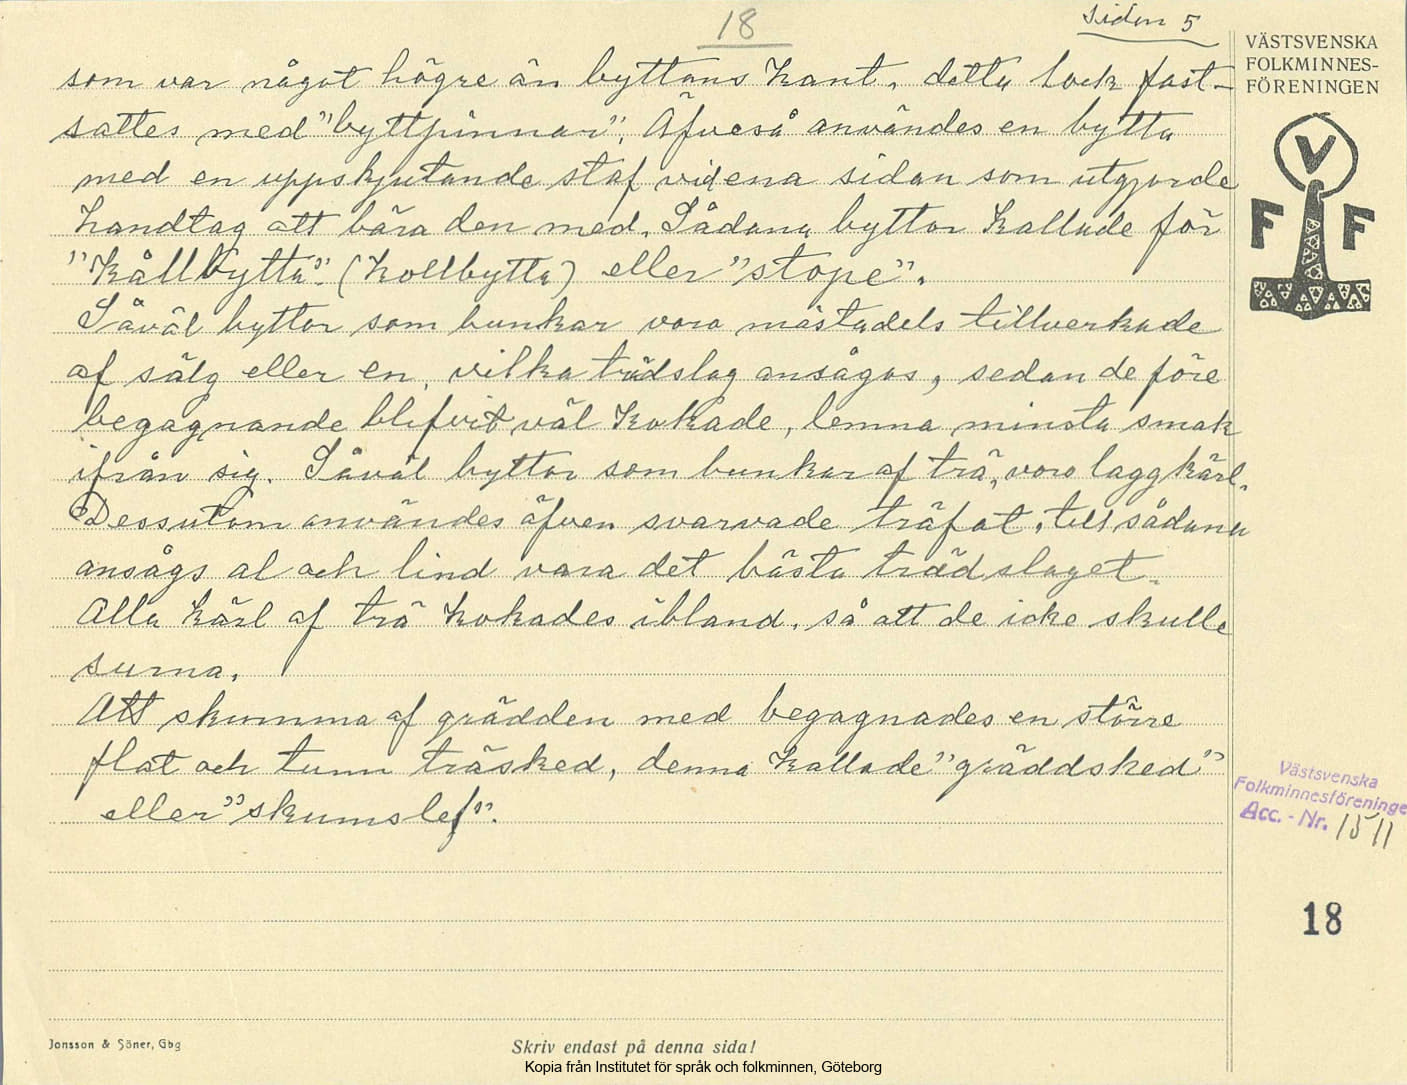 18
Sidan 5
som var något högre än byttans kant, detta lock fast-
sattes med "byttpinnar". Äfveså användes en bytta
med en uppskjutande staf vid ena sidan som utgjorde
handtag att bära den med. Sådana byttor kallade för
"kållbytta". (kollbytta) eller "stope".
Såväl byttor som bunkar voro mästadels tillverkade
af sälg eller en, vilka trädslag ansågos, sedan de före
begagnande blifvit väl kokade, lemna minsta smak
ifrån sig. Såväl byttor som bunkar af trä, voro laggkärl.
Dessutom användes äfven svarvade träfat, till sådana
ansågs al och lind vara det bästa trädslaget.
Alla kärl af trä kokades ibland, så att de icke skulle
surna.
Att skumma af grädden med begagnades en större
flat och tunn träsked, denna kallade "gräddsked"
eller "skumslef".
VÄSTSVENSKA
FOLKMINNES-
FÖRENINGEN
V
F F
Västsvenska
Folkminnesföreningen
Acc.-Nr. 1511
18
Jonsson & Söner, Gbg
Skriv endast på denna sida!
Kopia från Institutet för språk och folkminnen, Göteborg